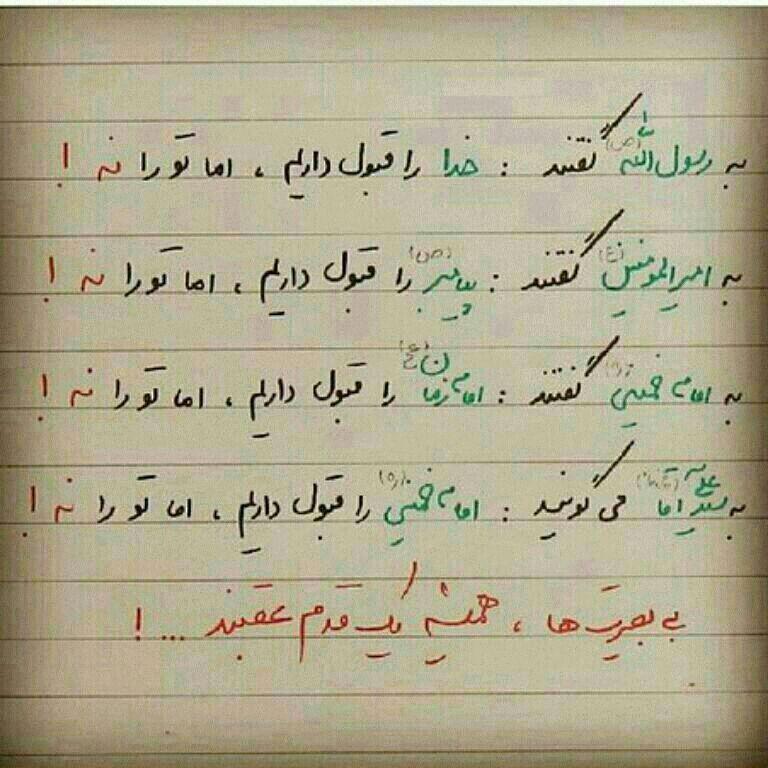 به رسول الله (ص) گفتند : خدا را قبول داریم ، اما تو را نه !
به امیرالمومنین (ع) گفتند : پیامبر (ص) را قبول داریم ، اما تو را نه !
به امام خمینی (ره) گفتند : امام زمان (عج) را قبول داریم ، اما تو را نه !
به سید علی آقا می گویند : امام خمینی (ره) را قبول داریم ، اما تو را نه !
بی بصیرت ها ، همیشه یک قدم عقبند ... !